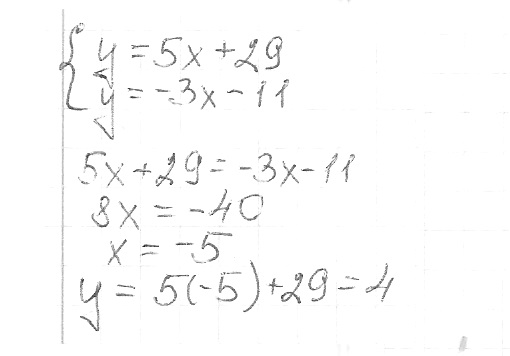 y = 5x + 29
y = -3x - 11
5x + 29 = -3x - 11
8x = -40
x = -5
y = 5(-5) + 29 = 4